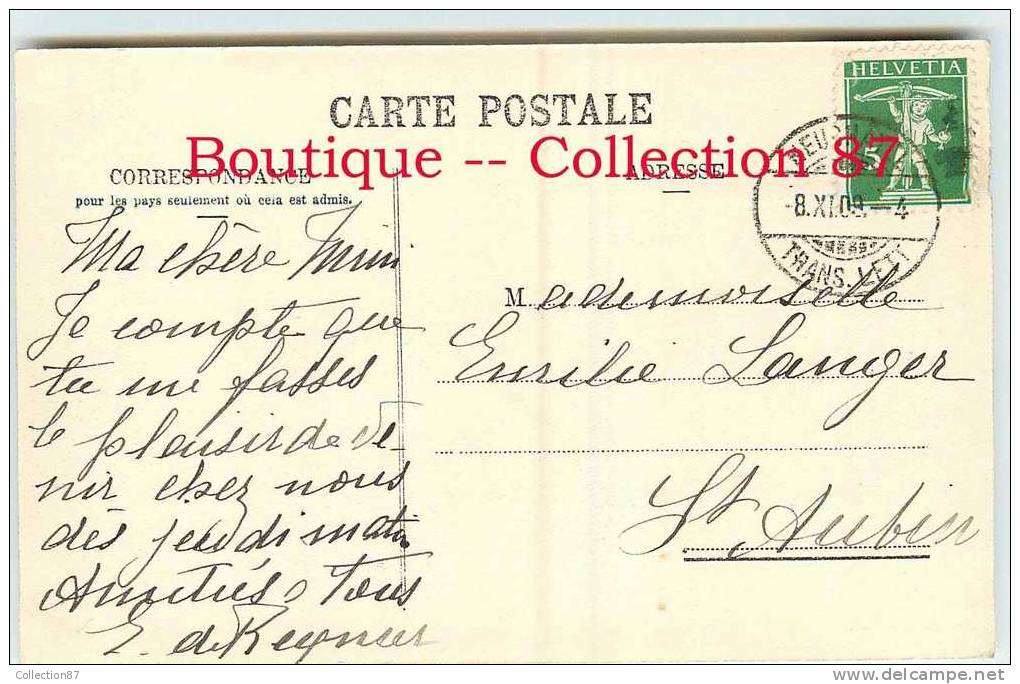 HELVETIA
CARTE POSTALE
Boutique -- Collection 87
5
CORRESPONDANCE
ADRESSE
pour les pays seulement où cela est admis.
-8.XI.09.-4
TRANS. LETT
Ma chère Mimi
Je compte que
tu me fasses
le plaisir de ve-
nir chez nous
dès jeudi matin
Amitiés
Tous
E. de Reynier
Mademoiselle
Emilie Langer
St Aubin
Collection87
www.delcampe.net